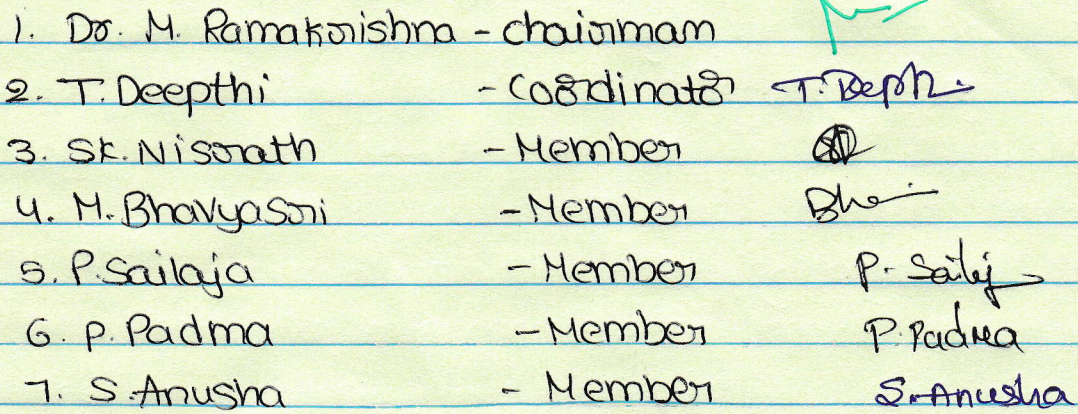 1. Dr. M. Ramakrishna - chairmam
2. T. Deepthi - Coordinator T. Depthi
3. SK. Nisrath - Member
4. M. Bhavyasri - Member Bha
5. P. Sailaja - Member P. Sailj
6. P. Padma - Member P. Padma
7. S. Anusha - Member S. Anusha